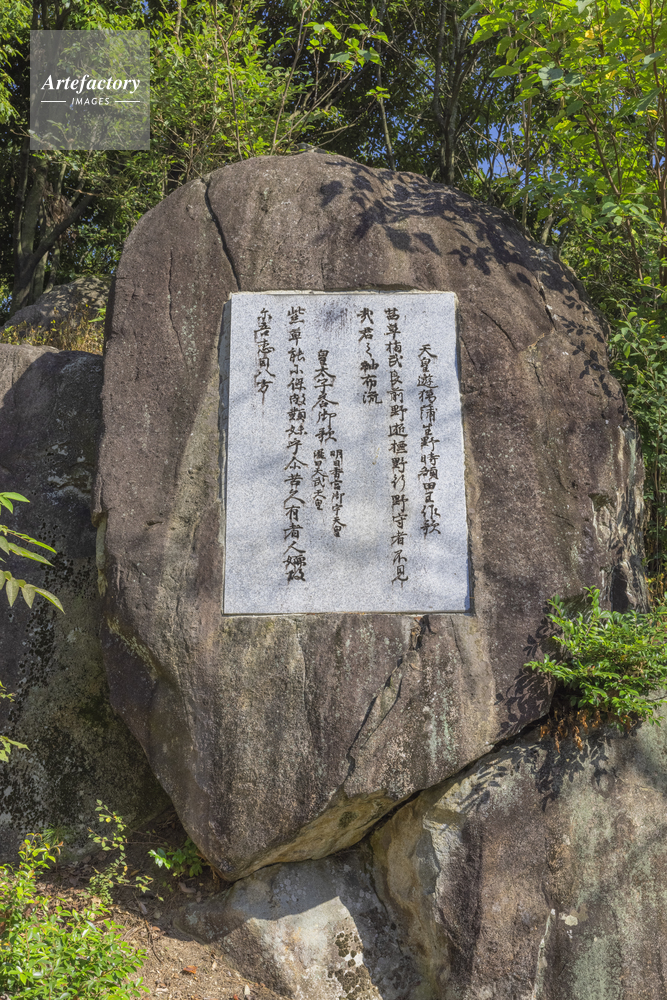 Artefactory
IMAGES
天皇遊獦蒲生野時額田王作歌
茜草指武良前野逝標野行野守者不見
哉君之袖布流
皇太子答御歌
明日香宮御宇天皇
謚曰天武天皇
紫草能尓保敝類妹乎尓苦久有者人嬬故
尓吾恋目八方